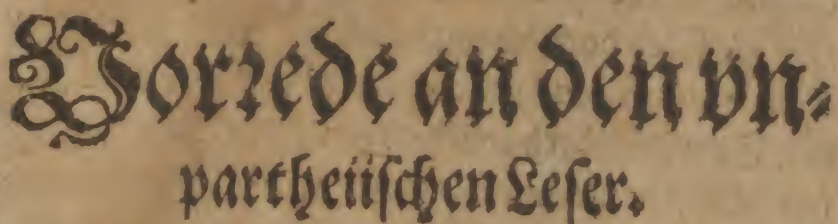 Vorrede an den vn⸗
partheiischen Leser.